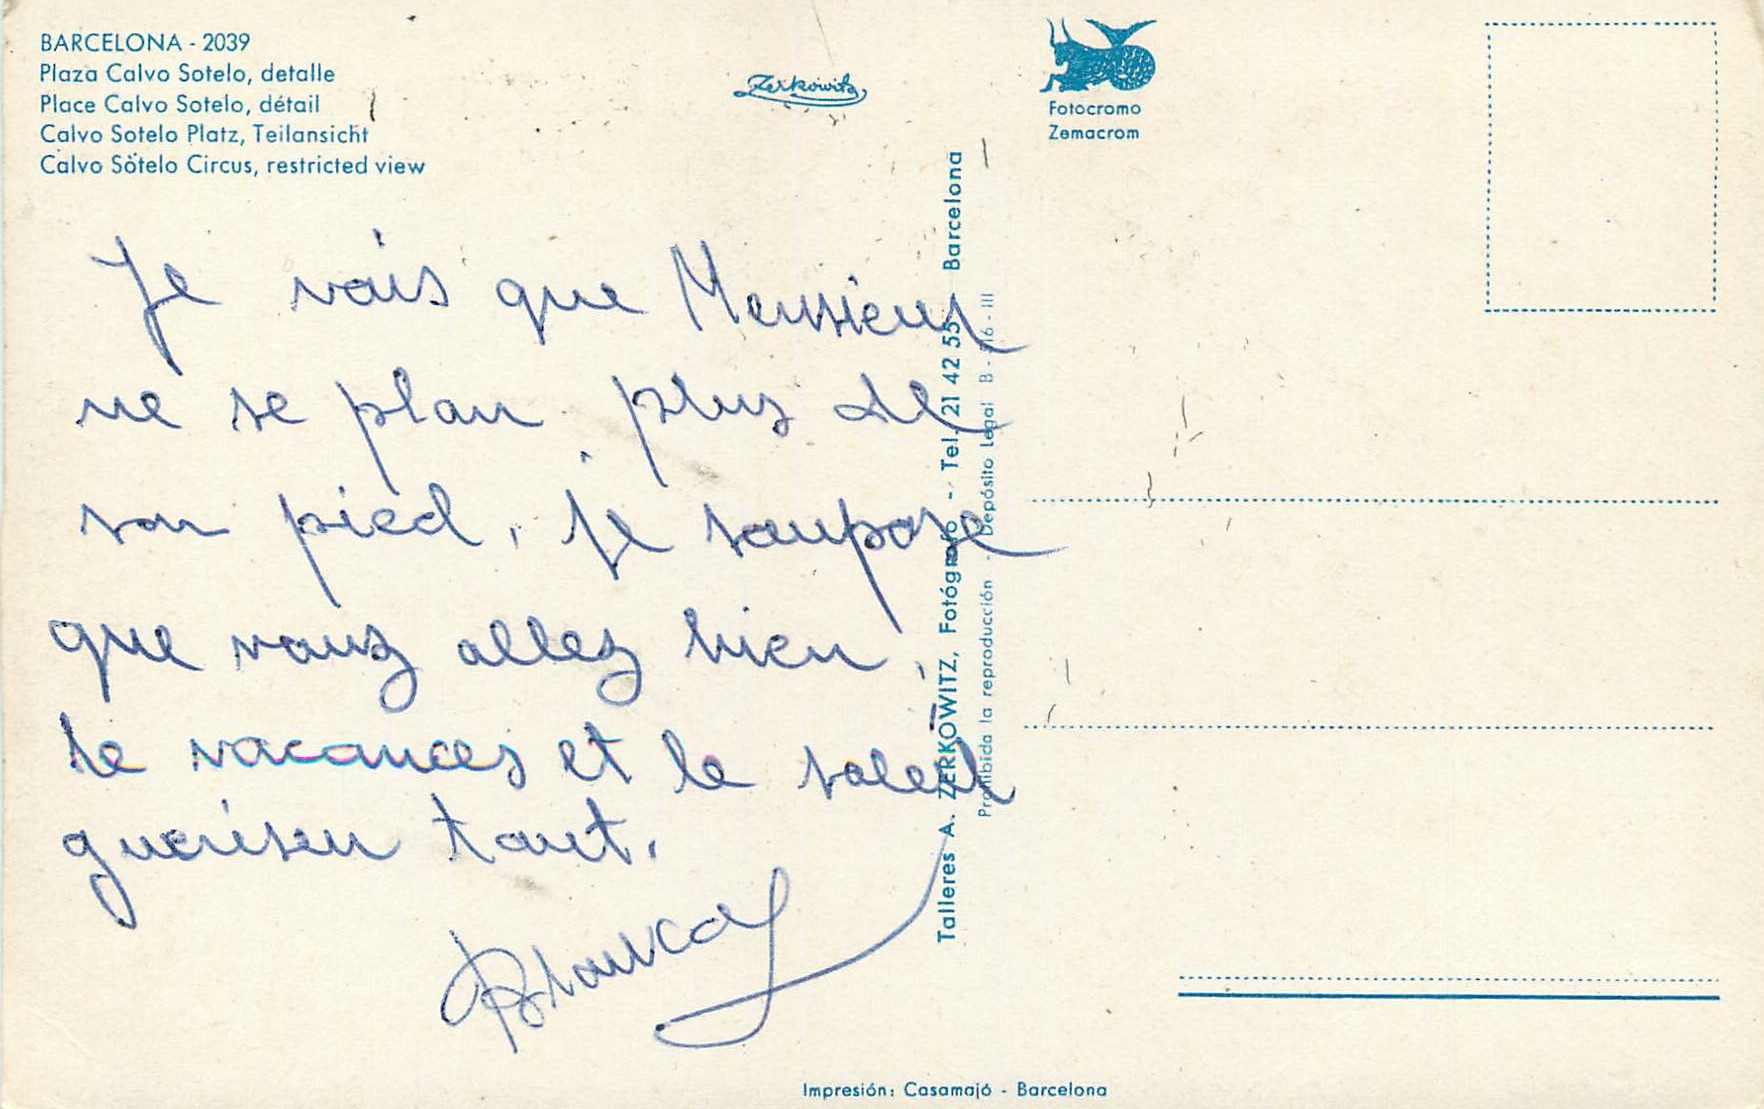 BARCELONA - 2039
Plaza Calvo Sotelo, detalle
Place Calvo Sotelo, détail
Calvo Sotelo Platz, Teilansicht
Calvo Sotelo Circus, restricted view
Zerkowitz
Fotocromo
Zemacrom
Je vais que Monsieur
ne se plan plus de
son pied, je soupose
que vous allez bien,
le vacances et le soleil
guerisen tout.
Talleres A. ZERKOWITZ, Fotógrafo - Tel. 21 42 55 - Barcelona
Prohibida la reproducción - Depósito Legal B - - III
Impresión: Casamajó - Barcelona